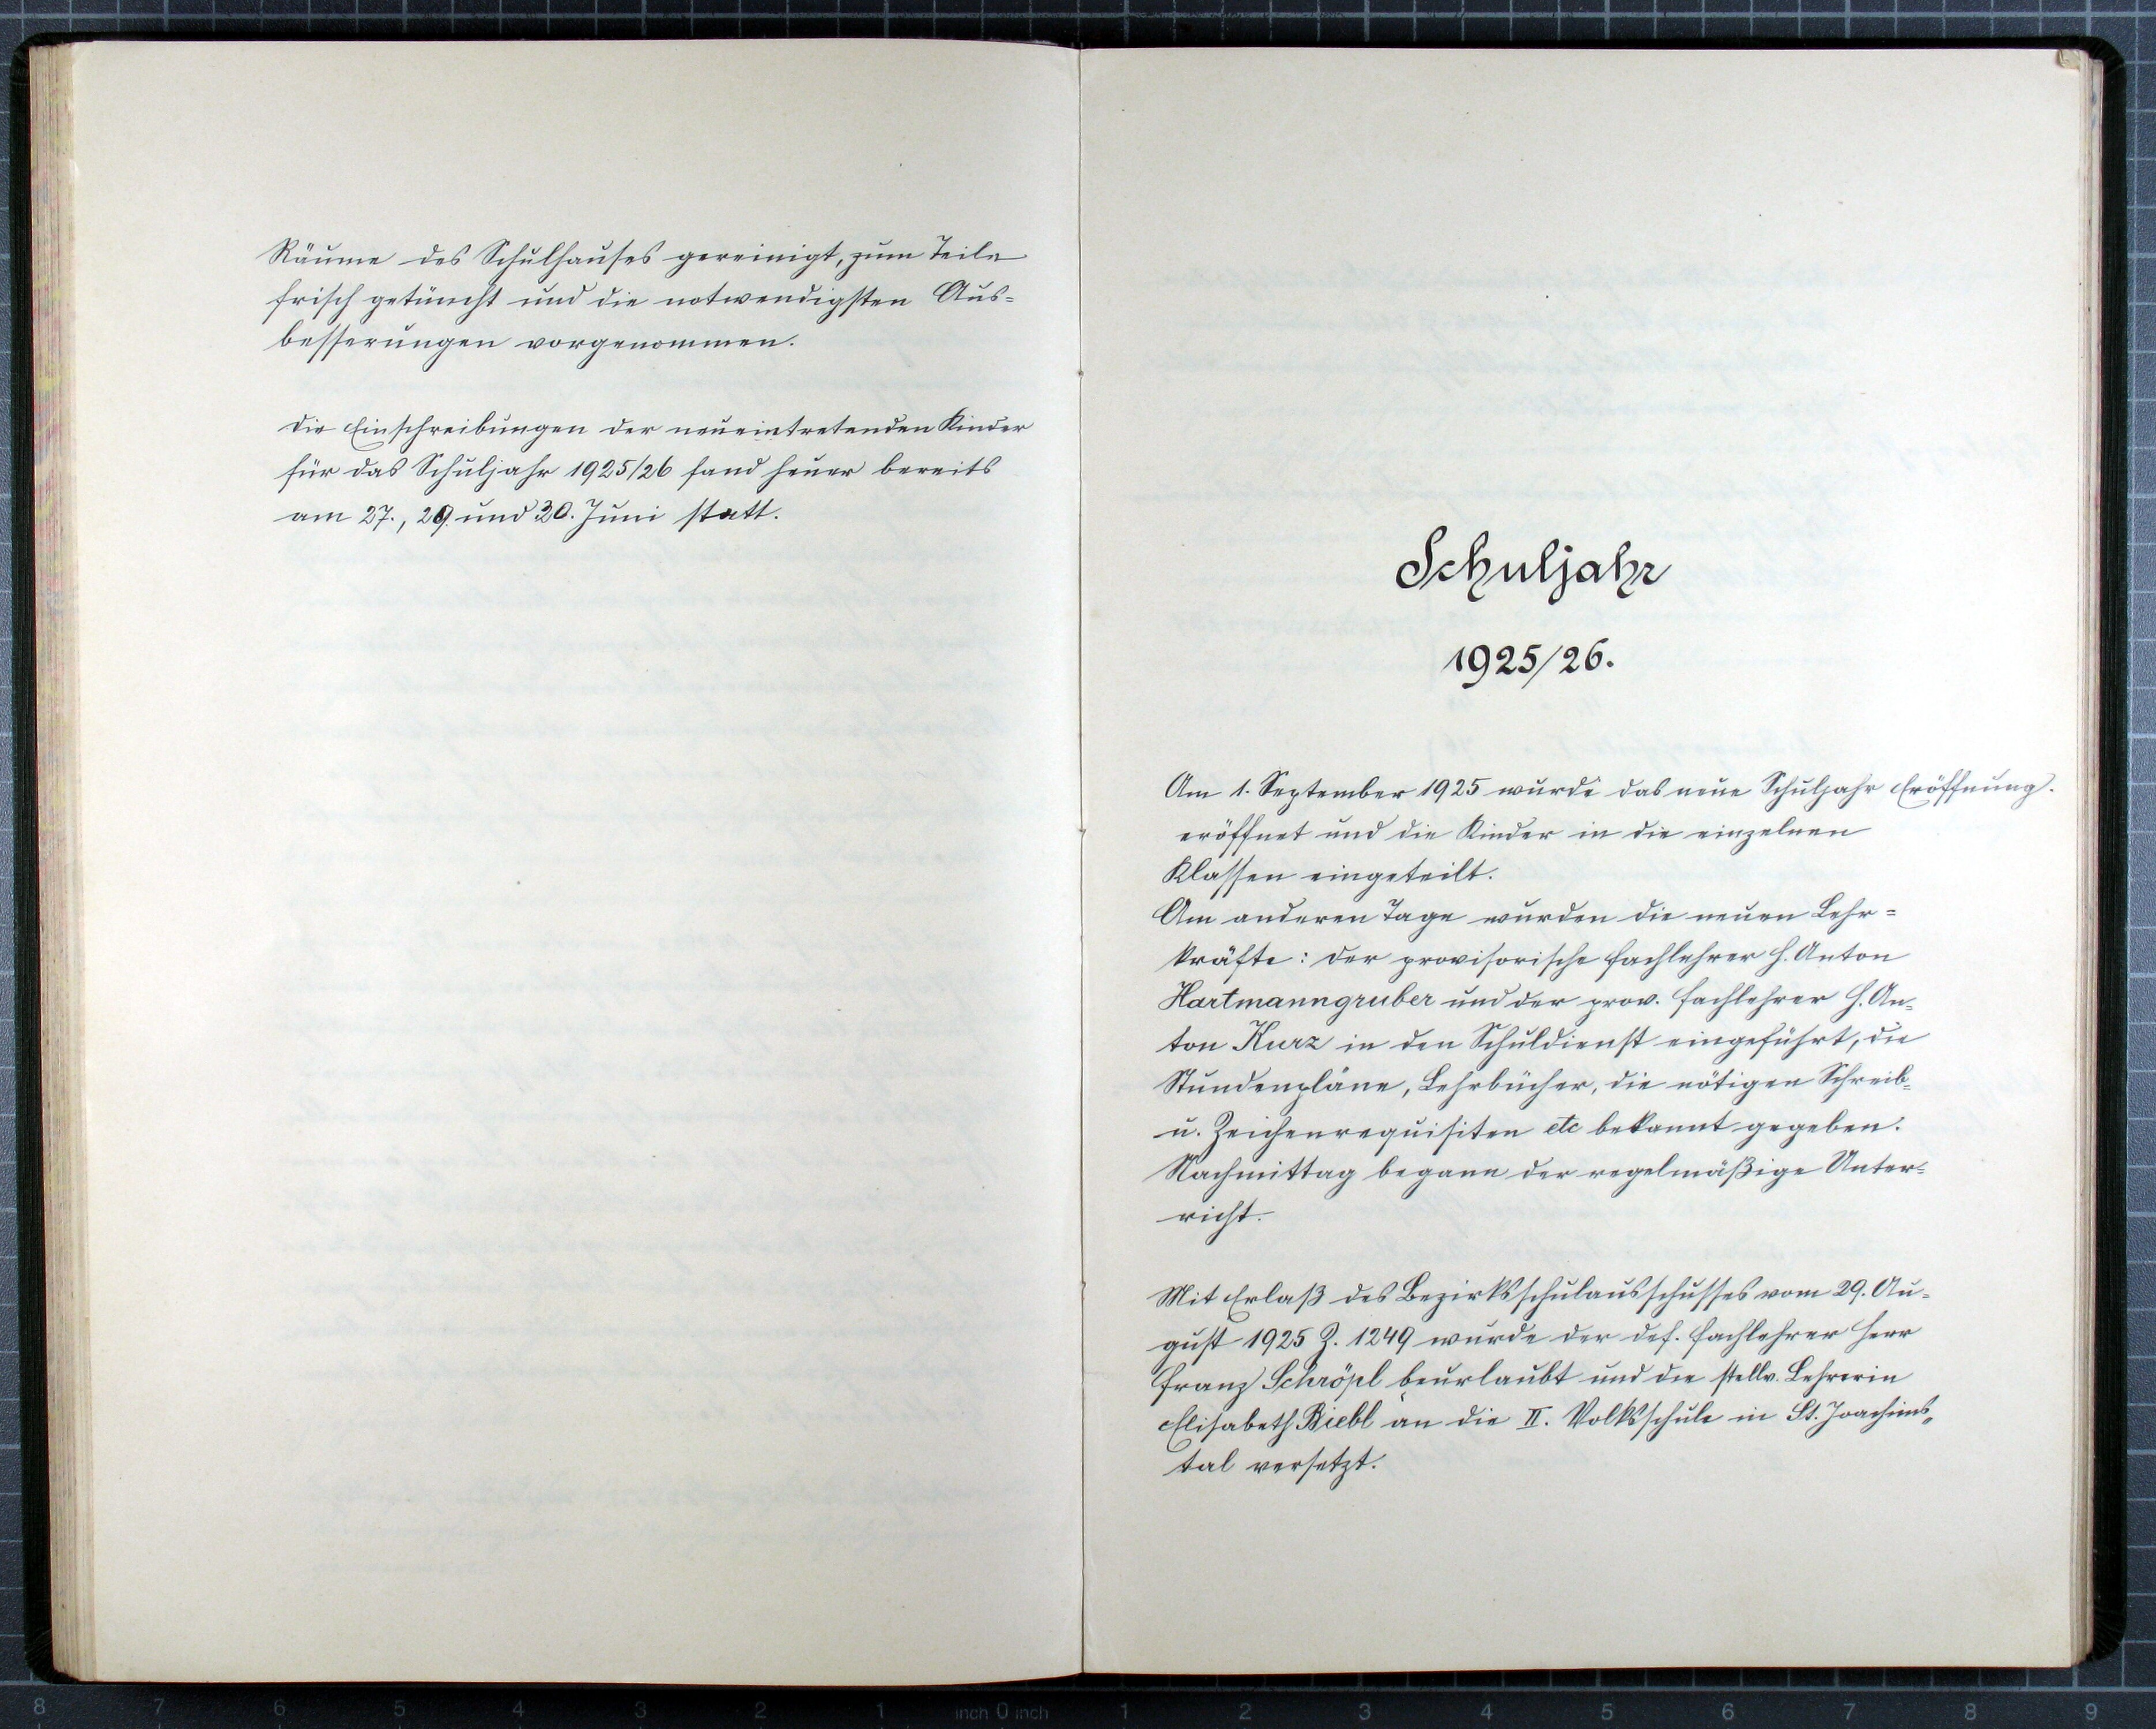 Räume des Schulhauses gereinigt, zum Teile
frisch getüncht und die notwendigsten Aus=
besserungen vorgenommen.
Die Einschreibungen der neueintretenden Kinder
für das Schuljahr 1925/26 fand heuer bereits
am 27., 29. und 30. Juni statt.
Schuljahr
1925/26.
Am 1. September 1925 wurde das neue Schuljahr Eröffnung.
eröffnet und die Kinder in die einzelnen
Klassen eingeteilt.
Am anderen Tage wurden die neuen Lehr=
kräfte: der provisorische Fachlehrer H. Anton
Hartmanngruber und der prov. Fachlehrer H. An=
ton Kurz in den Schuldienst eingeführt, die
Stundenpläne, Lehrbücher, die nötigen Schreib=
u. Zeichenrequisiten etc bekannt gegeben.
Nachmittag begann der regelmäßige Unter=
richt.
Mit Erlaß des Bezirksschulausschusses vom 29. Au=
gust 1925 Z. 1249 wurde der def. Fachlehrer Herr
Franz Schröpl beurlaubt und die stellv. Lehrerin
Elisabeth Biebl an die II. Volksschule in St. Joachims=
tal versetzt.
8 7 6 5 4 3 2 1 inch 0 inch 1 2 3 4 5 6 7 8 9